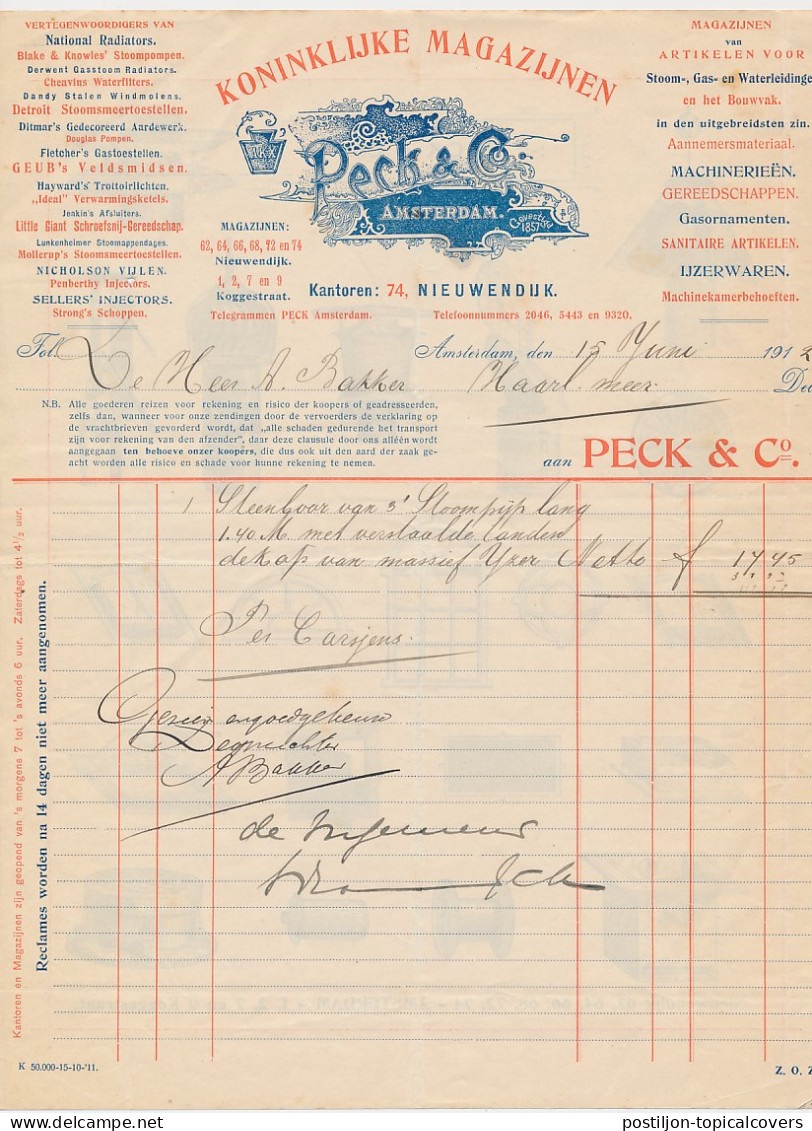 VERTEGENWOORDIGERS VAN
National Radiators.
Blake & Knowles' Stoompompen.
Derwent Gasstoom Radiators.
Cheavius Waterfilters.
Dandy Stalen Windmolens.
Detroit Stoomsmeertoestellen.
Ditmar's Gedecoreerd Aardewerk.
Douglas Pompen.
Fletcher's Gastoestellen.
GEUB's Veldsmidsen.
Hayward's Trottoirlichten.
„Ideal" Verwarmingsketels.
Jenkin's Afsluiters.
Little Giant Schroefsnij-Gereedschap.
Lunkenheimer Stoomappendages.
Mollerup's Stoomsmeertoestellen.
NICHOLSON VIJLEN.
Penberthy Injectors.
SELLERS' INJECTORS.
Strong's Schoppen.
KONINKLIJKE MAGAZIJNEN
Peck & Co.
AMSTERDAM.
Gevestigd
1857
MAGAZIJNEN:
62, 64, 66, 68, 72 en 74
Nieuwendijk.
1, 2, 7 en 9
Koggestraat.
Kantoren: 74, NIEUWENDIJK.
Telegrammen PECK Amsterdam.
Telefoonnummers 2046, 5443 en 9320.
MAGAZIJNEN
van
ARTIKELEN VOOR
Stoom-, Gas- en Waterleidinge
en het Bouwvak.
in den uitgebreidsten zin.
Aannemersmateriaal.
MACHINERIEËN.
GEREEDSCHAPPEN.
Gasornamenten.
SANITAIRE ARTIKELEN.
IJZERWAREN.
Machinekamerbehoeften.
Fol. Amsterdam, den 15 Juni 1912
De Heer A. Bakker Haarl. meer De
N.B. Alle goederen reizen voor rekening en risico der koopers of geadresseerden,
zelfs dan, wanneer voor onze zendingen door de vervoerders de verklaring op
de vrachtbrieven gevorderd wordt, dat „alle schaden gedurende het transport
zijn voor rekening van den afzender", daar deze clausule door ons alléén wordt
aangegaan ten behoeve onzer koopers, die dus ook uit den aard der zaak ge-
acht worden alle risico en schade voor hunne rekening te nemen.
aan PECK & Co.
1 Steenboor van 3" Stoompijp lang
1.40 M. met verstaalde tanden
de kap van massief Yzer Netto f 17 45
Per Carsjens.
Gezien en goedgekeurd
De opzichter
A Bakker
de Ingenieur
Kantoren en Magazijnen zijn geopend van 's morgens 7 tot 's avonds 6 uur. Zaterdags tot 4 1/2 uur.
Reclames worden na 14 dagen niet meer aangenomen.
K 50.000-15-10-'11.
Z. O. Z
postiljon-topicalcovers
postiljon-topicalcovers.com